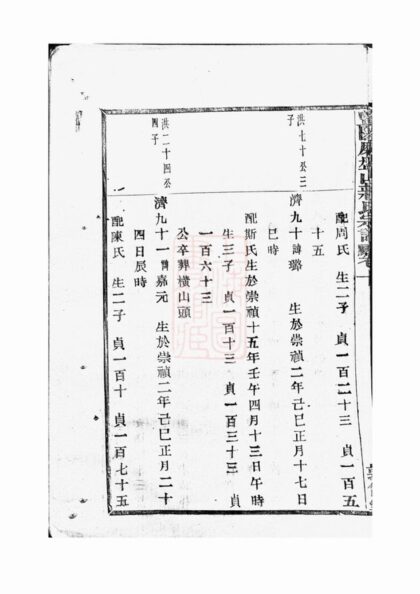 配周氏 生二子 貞一百二十三 貞一百五
十五
洪七十公三
子
濟九十諱璐 生於崇禎二年己巳正月十七日
巳時
配斯氏生於崇禎十五年壬午四月十三日午時
生三子 貞一百十三 貞一百三十三 貞
一百六十三
公卒葬橫山頭
洪二十四公
四子
濟九十一諱嘉元 生於崇禎二年己巳正月二十
四日辰時
配陳氏 生二子 貞一百十 貞一百七十五